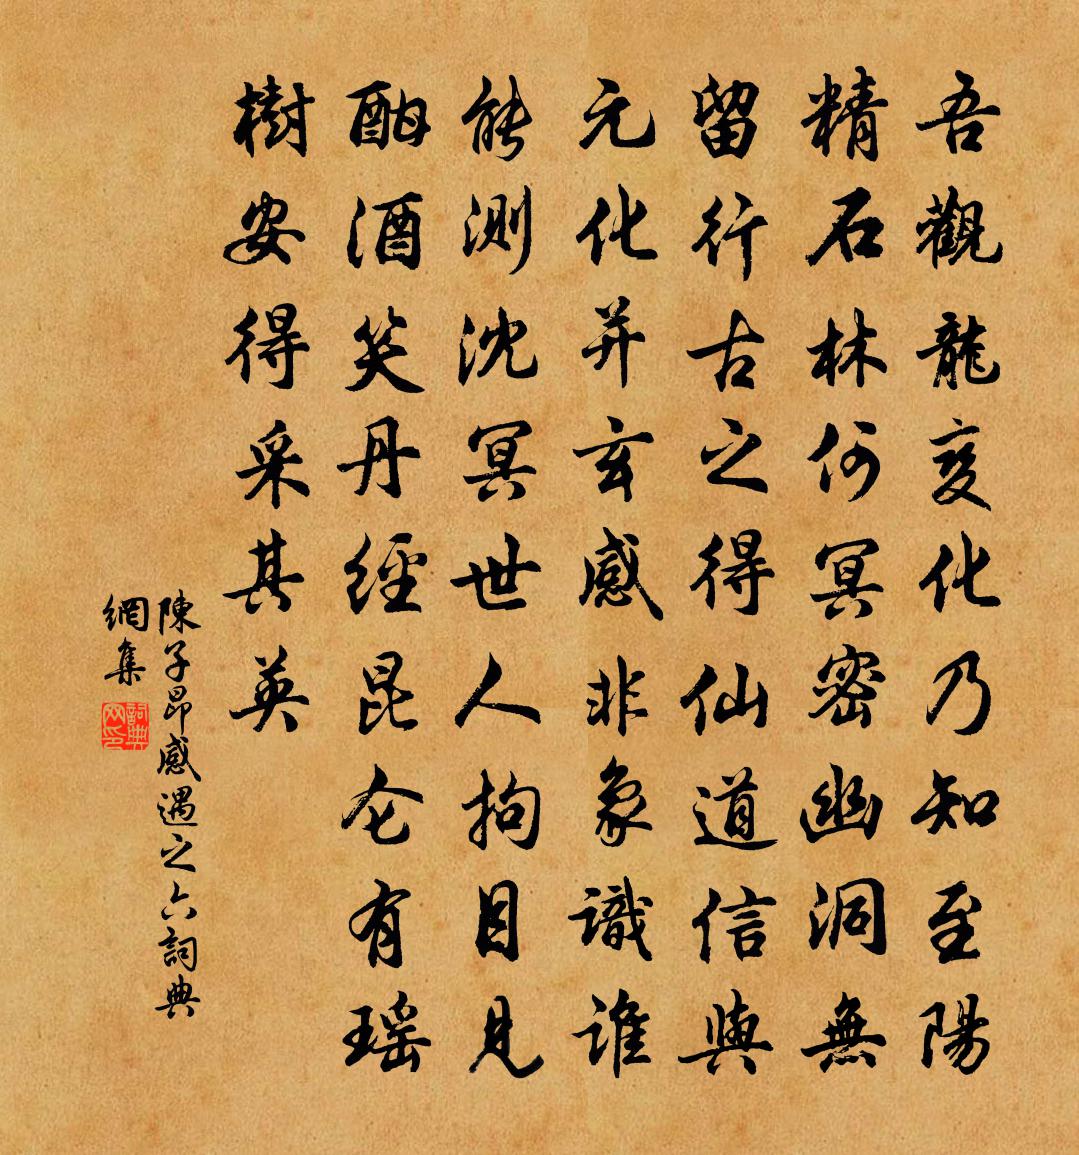 吾觀龍变化乃知至陽
精石林何冥密幽洞無
留行古之得仙道信與
元化并玄感非象識誰
能測沈冥世人拘目見
酣酒笑丹經昆仑有瑶
樹安得采其英
陳子昂感遇之六詞典
網集
詞典
网印